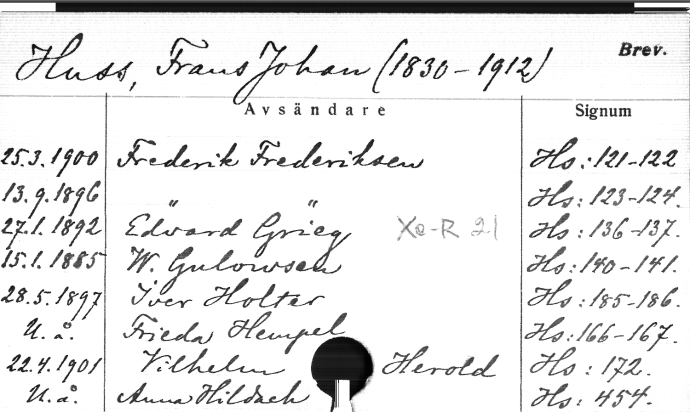 Brev.
Huss, Frans Johan (1830-1912)
Avsändare Signum
25.3.1900 Frederik Frederiksen Hs:121-122
13.9.1896 " " Hs:123-124.
27.1.1892 Edvard Grieg Xa-R 21 Hs:136-137.
15.1.1885 W. Gulowsen Hs:140-141.
28.5.1897 Iver Holter Hs:185-186.
U.å. Frieda Hempel Hs:166-167.
22.4.1901 Vilhelm Herold Hs: 172.
U.å. Anna Hildach Hs: 454.